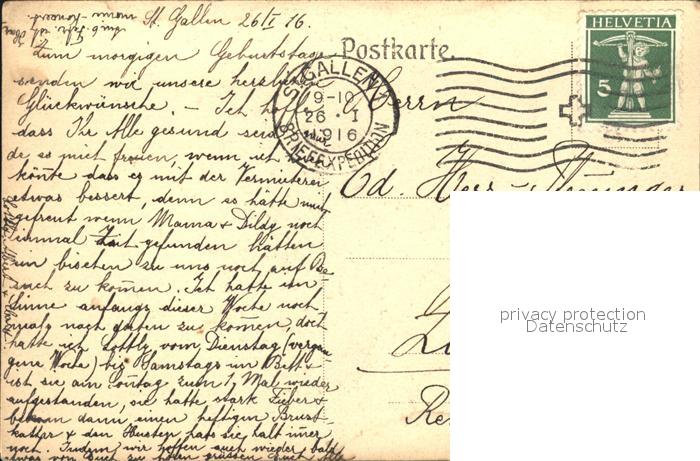 St. Gallen 26/I 16.
Zum morgigen Geburtstage
senden wir unsere herzlichen
Glückwünsche. – Ich hoffe
dass Ihr Alle gesund seid
de, es mich freuen, wenn ich
könte dass es mit der
etwas bessert, denn es hätte mich
gefreut wenn Mama & Dildy noch
einmal Zeit gefunden hätten
ein bischen zu uns noch auf Be-
such zu komen. Ich hatte im
Sinne anfangs dieser Woche noch
nach daten zu komen, doch
hatte ich Lottly vom Dienstag (vergan-
gene Woche) bis Samstags im Bett &
ist sie am Sontag zum 1. Mal wieder
aufgestanden, sie hatte stark Fieber &
bekam dann einen heftigen Brust-
kathar & den Husten hat sie halt imer
noch. Indem wir hoffen auch wieder bald
etwas von Euch zu hören grüssen Euch Alle
Postkarte.
ST. GALLEN 1
9-10
26 · I
1916
BRIEFEXPEDITION
HELVETIA
5
Herrn
Ed. Herr
privacy protection
Datenschutz